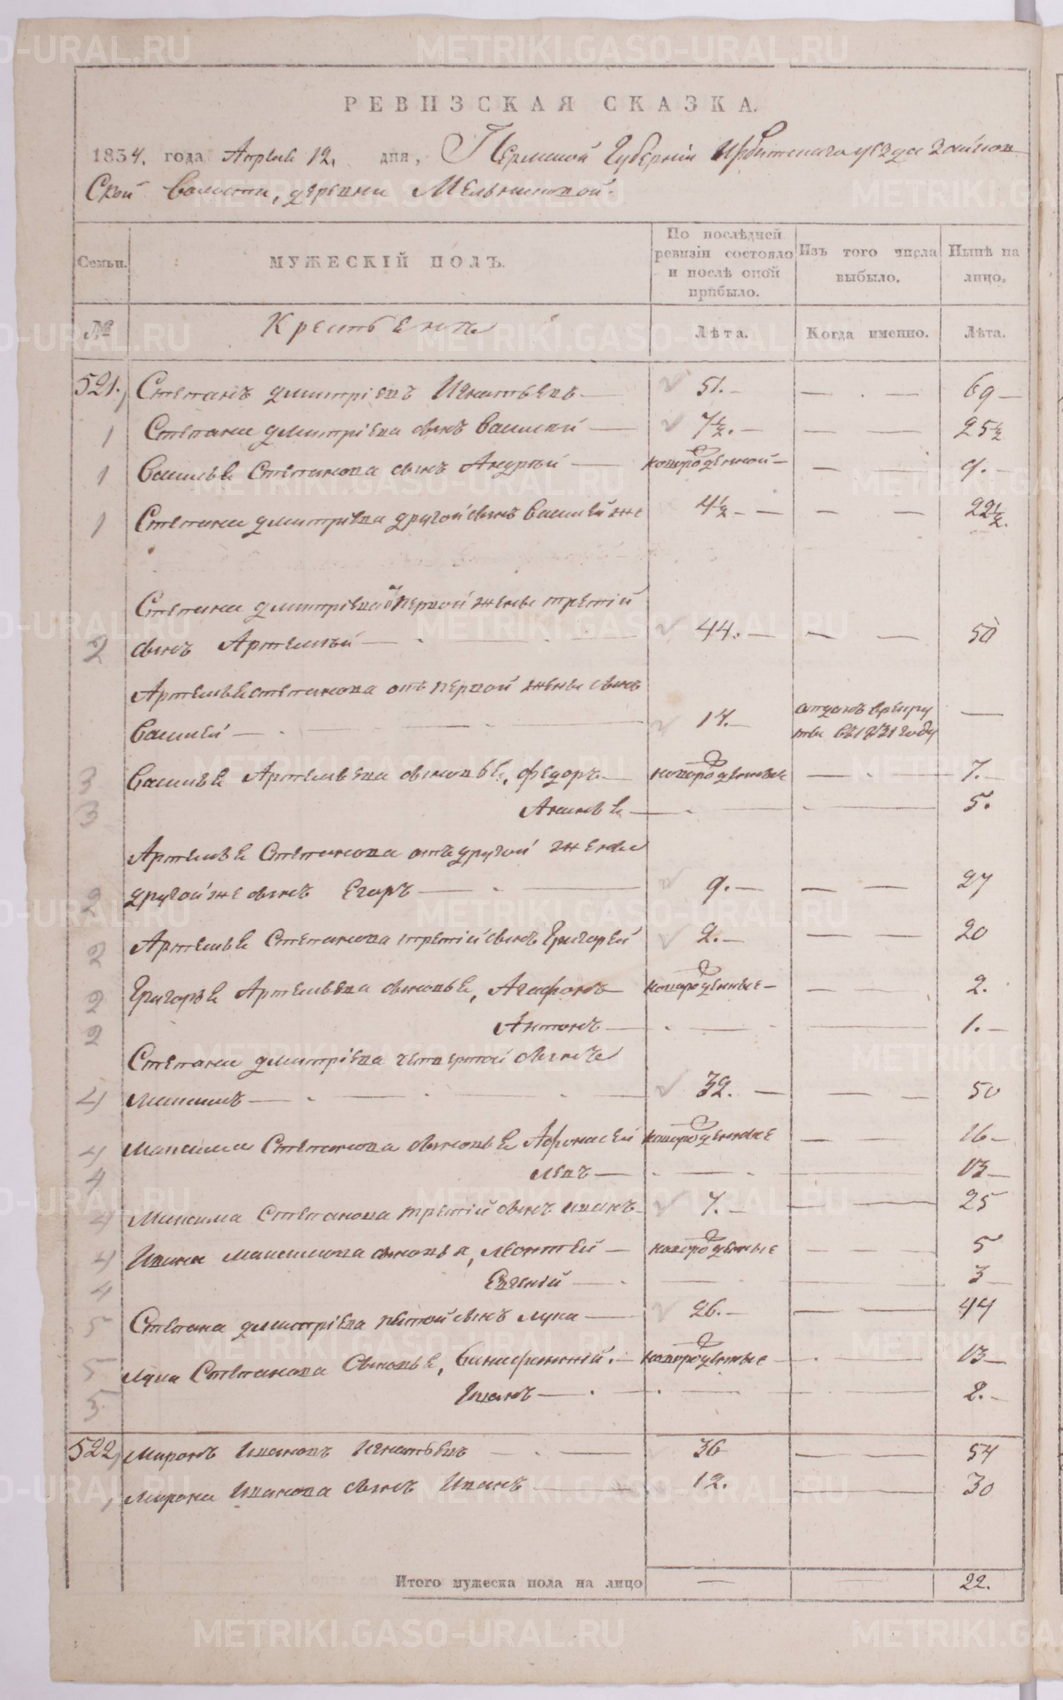 РЕВИЗСКАЯ СКАЗКА.
1834. года Апреля 12. дня, Пермской Губернiи Ирбитскаго уѣзда
ской волости, деревни Мельниковой.
Семьи. МУЖЕСКIЙ ПОЛЪ. По послѣдней ревизiи состояло и послѣ оной прибыло. Изъ того числа выбыло. Нынѣ на лицо.
№ Крестьяне Лѣта. Когда именно. Лѣта.
521. Степанъ Дмитрiевъ Игнатьевъ — 51. — — — 69 —
1 Степана Дмитрiева сынъ Василий — 7½. — — 25½
1 Василья Степанова сынъ Андрей — новорожденной — — — 9. —
1 Степана Дмитрiева другой сынъ Василей же 4½ — — — — 22½.
Степана Дмитрiева отъ первой жены третiй
2 сынъ Артемей — 44. — — — 50
Артемья Степанова отъ первой жены сынъ
Василей — 14. — отданъ в рекруты въ 1831 году —
3 Василья Артемьева сыновья, Федоръ — новорожденные — — 7. —
3 Акинъ — 5.
Артемья Степанова отъ другой жены
2 другой же сынъ Егоръ — 9. — — — 27
2 Артемья Степанова третiй сынъ Григорей 2. — — — 20
2 Григорья Артемьева сыновья, Агафонъ — новорожденные — — — 2.
2 Антонъ — 1. —
Степана Дмитрiева четвертой сынъ
4 Максимъ — 32. — — — 50
4 Максима Степанова сыновья Афонасей новорожденные — — 16 —
4 Левъ — — — 13 —
4 Максима Степанова третiй сынъ Иванъ — 7. — — — 25
4 Ивана Максимова сыновья, Леонтей — новорожденные — — 5
4 Евгенiй — — — 3
5 Степана Дмитрiева пятой сынъ Лука — 26. — — — 44
5 Луки Степанова сыновья, новорожденные — — 13 —
5 — — — 2. —
522, Миронъ Ивановъ Игнатьевъ — — 36 — 54
1 Мирона Иванова сынъ Иванъ — 12. — 30
Итого мужеска пола на лицо — — 22.
METRIKI.GASO-URAL.RU